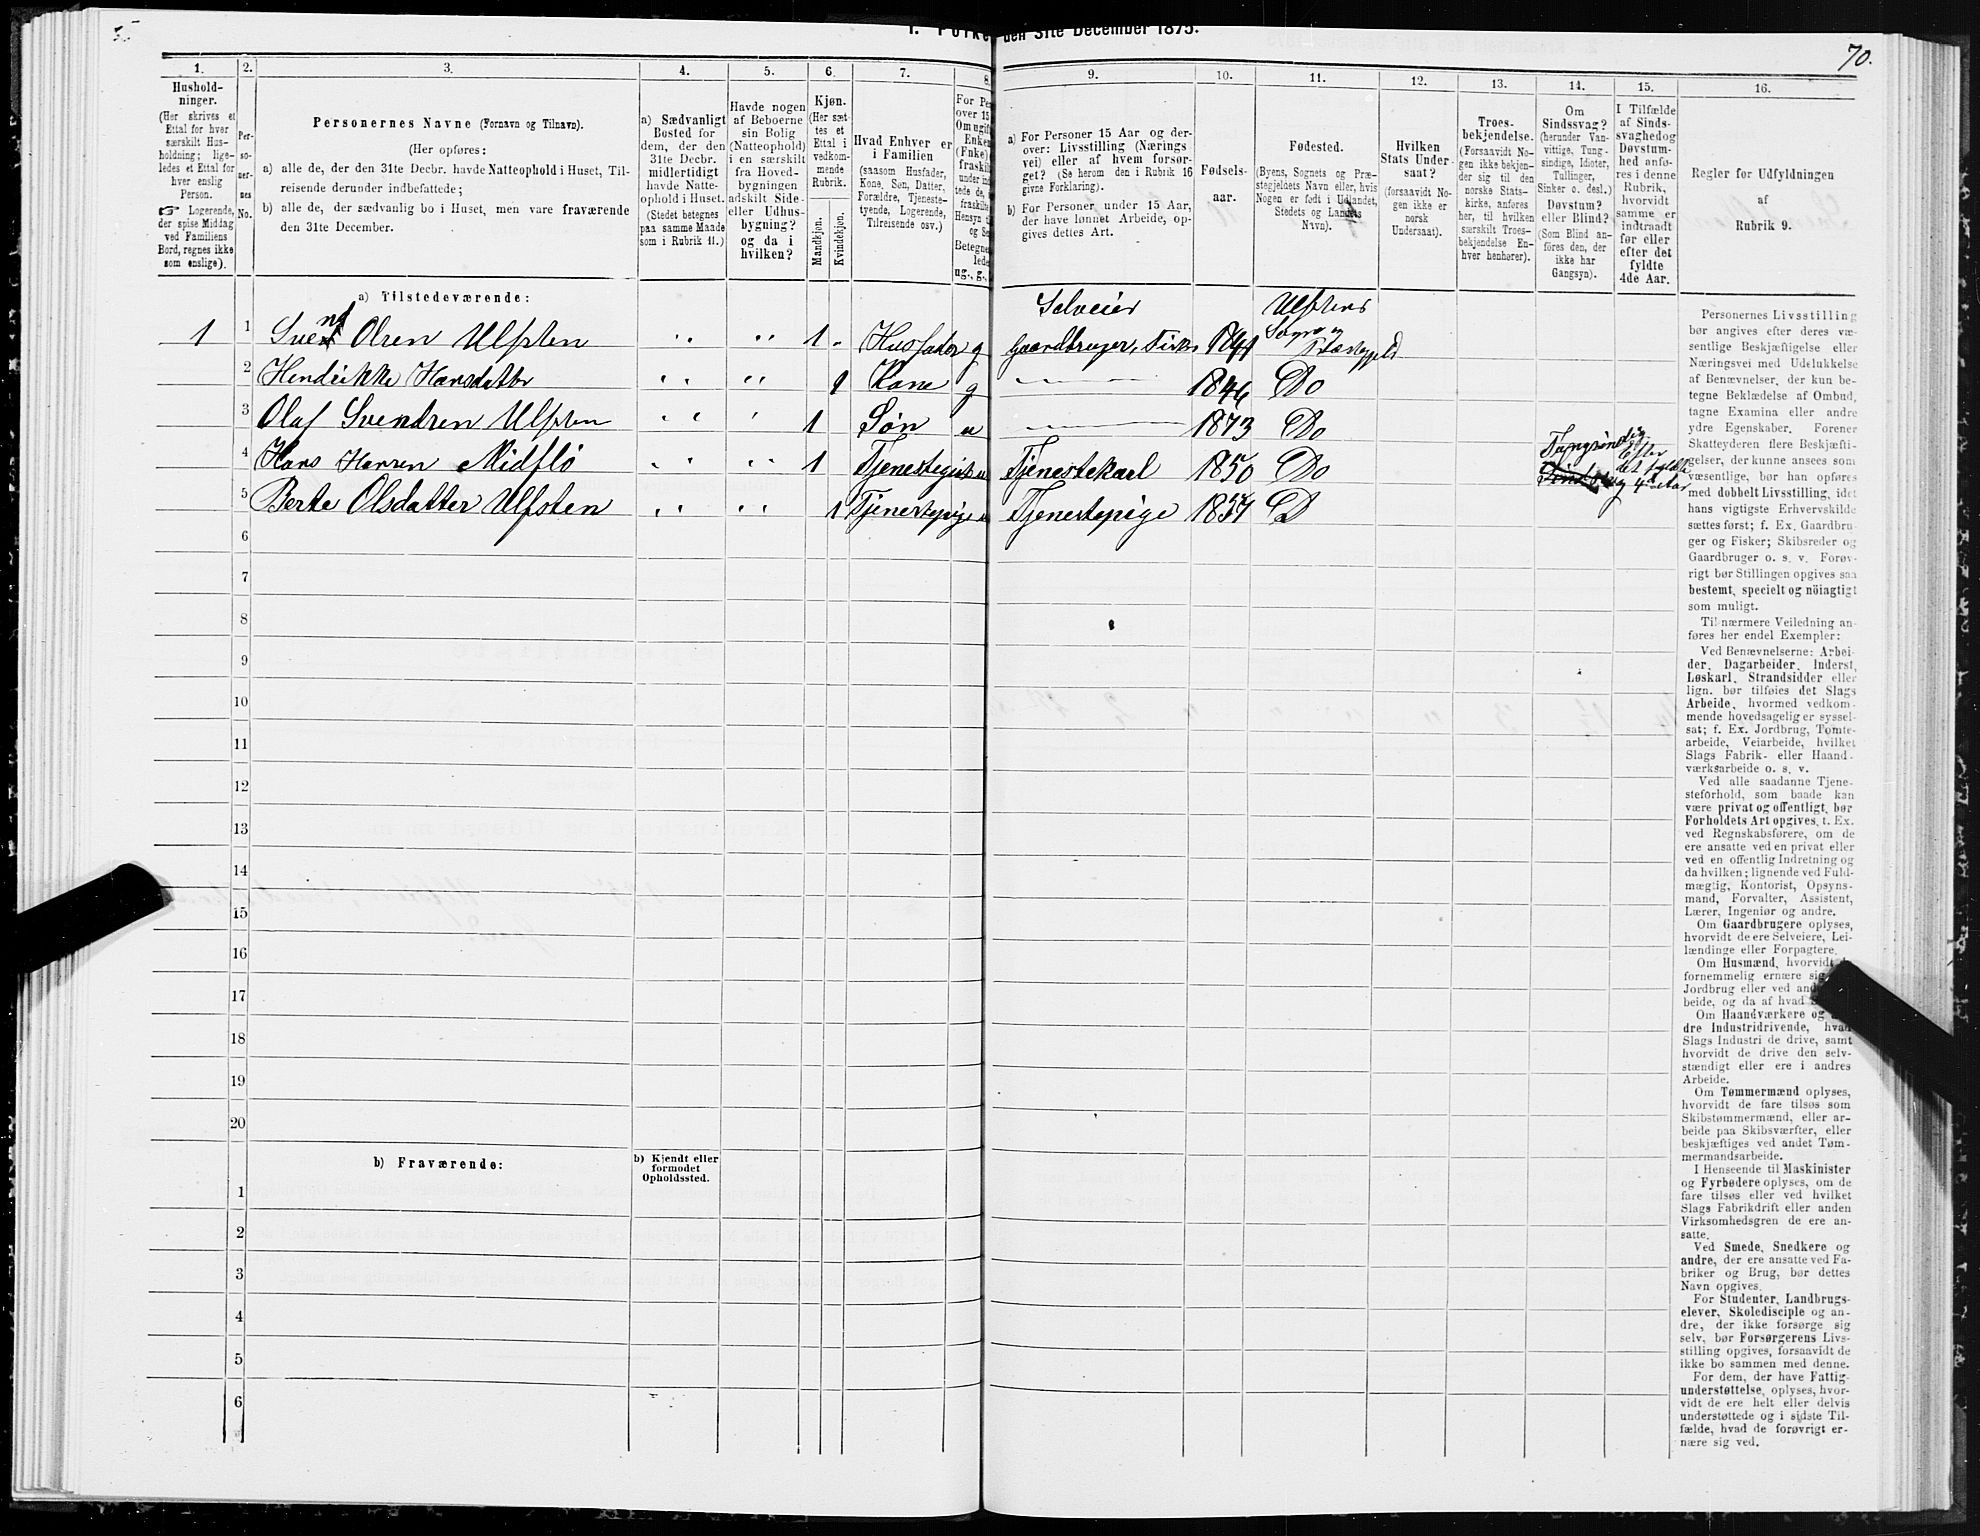 1. Folke
den 31te December 1875.
70.
1.
2.
3.
4.
5.
6.
7.
8.
9.
10.
11.
12.
13.
14.
15.
16.
Hushold-
ninger.
(Her skrives et
Ettal for hver
særskilt Hus-
holdning; lige-
ledes et Ettal for
hver enslig
Person.
☞ Logerende,
der spise Middag
ved Familiens
Bord, regnes ikke
som enslige).
Per-
so-
ner-
nes
No.
Personernes Navne (Fornavn og Tilnavn).
(Her opføres:
a) alle de, der den 31te Decbr. havde Natteophold i Huset, Til-
reisende derunder indbefattede;
b) alle de, der sædvanlig bo i Huset, men vare fraværende
den 31te December.
a) Sædvanligt
Bosted for
dem, der den
31te Decbr.
midlertidigt
havde Natte-
ophold i Huset.
(Stedet betegnes
paa samme Maade
som i Rubrik 11.)
Havde nogen
af Beboerne
sin Bolig
(Natteophold)
i en særskilt
fra Hoved-
bygningen
adskilt Side-
eller Udhus-
bygning?
og da i
hvilken?
Kjøn.
(Her sæt-
tes et
Ettal i
vedkom-
mende
Rubrik.
Mandkjøn.
Kvindekjøn.
Hvad Enhver er
i Familien
(saasom Husfader,
Kone, Søn, Datter,
Forældre, Tjeneste-
tyende, Logerende,
Tilreisende osv.)
For Pe
over 15
Om ugift
Enken
(Fnke)
fraskil
under ind
tede de,
fraskilte
Hensyn ti
og Se
Betegne
lede
ug., g.,
a) For Personer 15 Aar og der-
over: Livsstilling (Nærings
vei) eller af hvem forsør-
get? (Se herom den i Rubrik 16
givne Forklaring).
b) For Personer under 15 Aar,
der have lønnet Arbeide, op-
gives dettes Art.
Fødsels-
aar.
Fødested.
(Byens, Sognets og Præ-
stegjeldets Navn eller, hvis
Nogen er født i Udlandet,
Stedets og Landets
Navn).
Hvilken
Stats Under-
saat?
(forsaavidt No-
gen ikke er
norsk
Undersaat).
Troes-
bekjendelse.
(Forsaavidt No-
gen ikke bekjen-
der sig til den
norske Stats-
kirke, anføres
her, til hvilken
særskilt Troes-
bekjendelse En-
hver henhører).
Om
Sindssvag?
(herunder Van-
vittige, Tung-
sindige, Idioter,
Tullinger,
Sinker o. desl.)
Døvstum?
eller Blind?
(Som Blind an-
føres den, der
ikke har
Gangsyn).
I Tilfælde
af Sinds-
svaghedog
Døvstum-
hed anfø-
res i denne
Rubrik,
hvorvidt
samme er
indtraadt
før eller
efter det
fyldte
4de Aar.
Regler for Udfyldningen
af
Rubrik 9.
a) Tilstedeværende:
Selveier Ulfstens
1 1 Svend Olsen Ulfsten „ „ 1 „ Husfader g Gaardbruger, Fisker 1841 Sogn og Præstegjeld
2 Hendrikke Hansdatter „ „ 1 Kone g — 1846 Do
3 Olaf Svendsen Ulfsten „ „ 1 Søn u — 1873 Do
4 Hans Hansen Midflø „ „ 1 Tjenestegut u Tjenestekarl 1850 Do Tungsindig Efter det fyldte 4de Aar
5 Berte Olsdatter Ulfsten „ „ 1 Tjenestepige u Tjenestepige 1857 D
6
7
8
9
10
11
12
13
14
15
16
17
18
19
20
b) Fraværende:
b) Kjendt eller
formodet
Opholdssted.
1
2
3
4
5
6
Personernes Livsstilling
bør angives efter deres væ-
sentlige Beskjæftigelse eller
Næringsvei med Udelukkelse
af Benævnelser, der kun be-
tegne Beklædelse af Ombud,
tagne Examina eller andre
ydre Egenskaber. Forener
Skatteyderen flere Beskjæfti-
gelser, der kunne ansees som
væsentlige, bør han opføres
med dobbelt Livsstilling, idet
hans vigtigste Erhvervskilde
sættes først; f. Ex. Gaardbru-
ger og Fisker; Skibsreder og
Gaardbruger o. s. v. Forøv-
rigt bør Stillingen opgives saa
bestemt, specielt og nöiagtigt
som muligt.
Til nærmere Veiledning an-
føres her endel Exempler:
Ved Benævnelserne: Arbei-
der, Dagarbeider, Inderst,
Løskarl, Strandsidder eller
lign. bør tilføies det Slags
Arbeide, hvormed vedkom-
mende hovedsagelig er syssel-
sat; f. Ex. Jordbrug, Tomte-
arbeide, Veiarbeide, hvilket
Slags Fabrik- eller Haand-
værksarbeide o. s. v.
Ved alle saadanne Tjene-
steforhold, som baade kan
være privat og offentligt, bør
Forholdets Art opgives, t. Ex.
ved Regnskabsførere, om de
ere ansatte ved en privat eller
ved en offentlig Indretning og
da hvilken; lignende ved Fuld-
mægtig, Kontorist, Opsyns-
mand, Forvalter, Assistent,
Lærer, Ingeniør og andre.
Om Gaardbrugere oplyses,
hvorvidt de ere Selveiere, Lei-
lændinge eller Forpagtere.
Om Husmænd, hvorvidt de
fornemmelig ernære sig
Jordbrug eller ved and
beide, og da af hvad
Om Haandværkere og
dre Industridrivende, hvad
Slags Industri de drive, samt
hvorvidt de drive den selv-
stændigt eller ere i andres
Arbeide.
Om Tømmermænd oplyses,
hvorvidt de fare tilsøs som
Skibstømmermænd, eller ar-
beide paa Skibsværfter, eller
beskjæftiges ved andet Tøm-
mermandsarbeide.
I Henseende til Maskinister
og Fyrbødere oplyses, om de
fare tilsøs eller ved hvilket
Slags Fabrikdrift eller anden
Virksomhedsgren de ere an-
satte.
Ved Smede, Snedkere og
andre, der ere ansatte ved Fa-
briker og Brug, bør dettes
Navn opgives.
For Studenter, Landbrugs-
elever, Skoledisciple og an-
dre, der ikke forsørge sig
selv, bør Forsørgerens Livs-
stilling opgives, forsaavidt de
ikke bo sammen med denne.
For dem, der have Fattig-
understøttelse, oplyses, hvor-
vidt de ere helt eller delvis
understøttede og i sidste Til-
fælde, hvad de forøvrigt er-
nære sig ved.